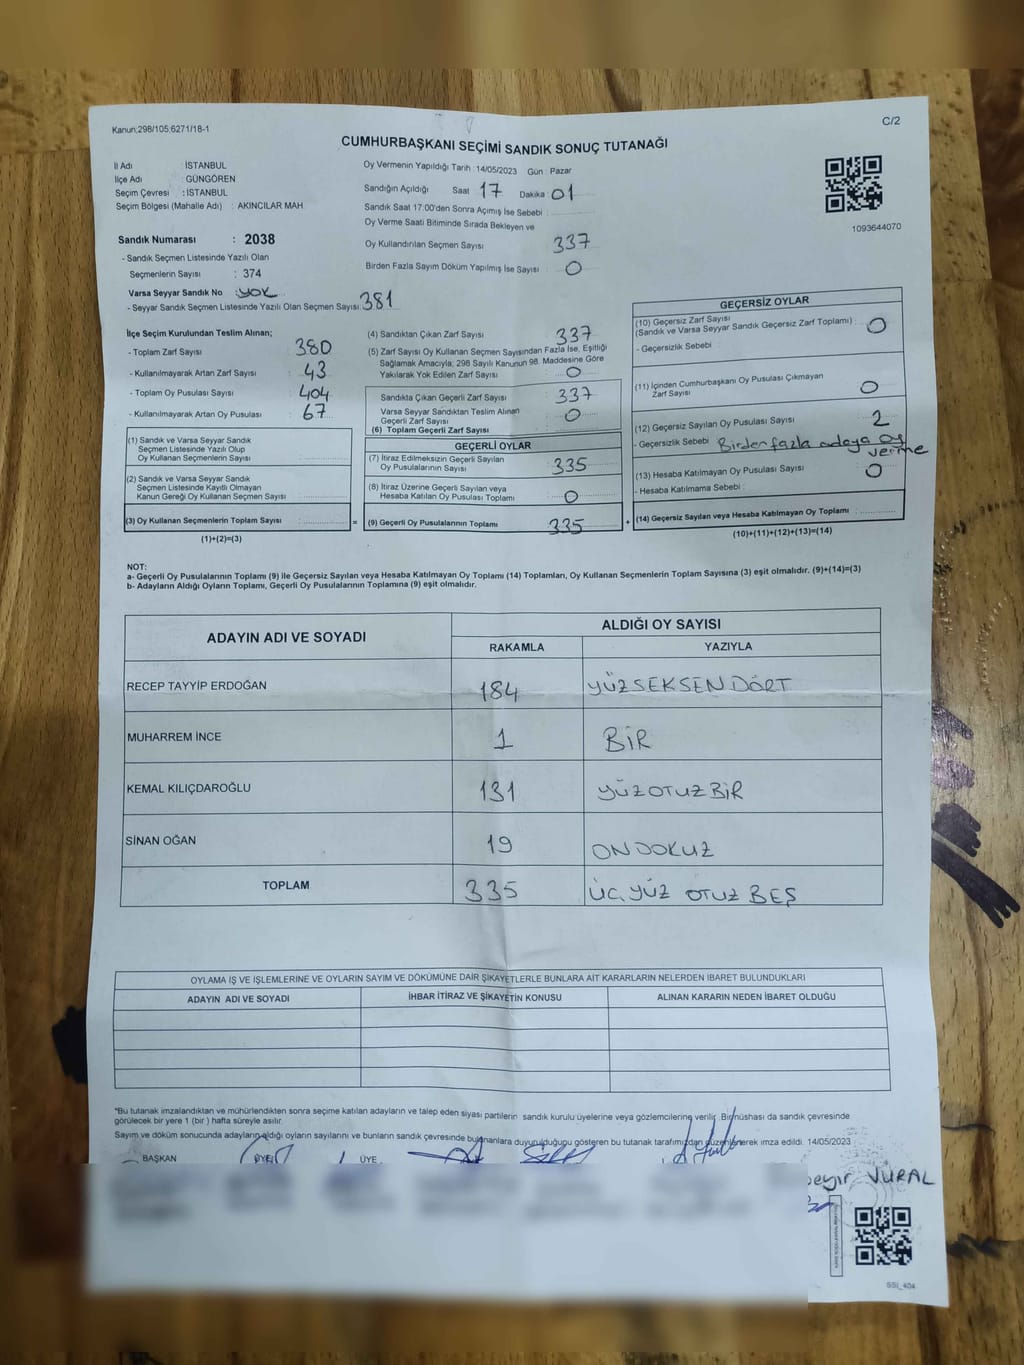 Kanun:298/105,6271/18-1
C/2
CUMHURBAŞKANI SEÇİMİ SANDIK SONUÇ TUTANAĞI
İl Adı : İSTANBUL
İlçe Adı : GÜNGÖREN
Seçim Çevresi : İSTANBUL
Seçim Bölgesi (Mahalle Adı) : AKINCILAR MAH.
Sandık Numarası : 2038
- Sandık Seçmen Listesinde Yazılı Olan
Seçmenlerin Sayısı : 374
Varsa Seyyar Sandık No : YOK
- Seyyar Sandık Seçmen Listesinde Yazılı Olan Seçmen Sayısı: 381
Oy Vermenin Yapıldığı Tarih : 14/05/2023 Gün : Pazar
Sandığın Açıldığı Saat 17 Dakika 01
Sandık Saat 17:00'den Sonra Açımış İse Sebebi :
Oy Verme Saati Bitiminde Sırada Bekleyen ve
Oy Kullandırılan Seçmen Sayısı : 337
Birden Fazla Sayım Döküm Yapılmış İse Sayısı : 0
1093644070
İlçe Seçim Kurulundan Teslim Alınan;
- Toplam Zarf Sayısı : 380
- Kullanılmayarak Artan Zarf Sayısı : 43
- Toplam Oy Pusulası Sayısı : 404
- Kullanılmayarak Artan Oy Pusulası : 67
(1) Sandık ve Varsa Seyyar Sandık
Seçmen Listesinde Yazılı Olup
Oy Kullanan Seçmenlerin Sayısı :
(2) Sandık ve Varsa Seyyar Sandık
Seçmen Listesinde Kayıtlı Olmayan
Kanun Gereği Oy Kullanan Seçmen Sayısı :
(3) Oy Kullanan Seçmenlerin Toplam Sayısı :
(1)+(2)=(3)
(4) Sandıktan Çıkan Zarf Sayısı : 337
(5) Zarf Sayısı Oy Kullanan Seçmen Sayısından Fazla İse, Eşitliği
Sağlamak Amacıyla; 298 Sayılı Kanunun 98. Maddesine Göre
Yakılarak Yok Edilen Zarf Sayısı : 0
Sandıkta Çıkan Geçerli Zarf Sayısı : 337
Varsa Seyyar Sandıktan Teslim Alınan
Geçerli Zarf Sayısı : 0
(6) Toplam Geçerli Zarf Sayısı :
GEÇERLİ OYLAR
(7) İtiraz Edilmeksizin Geçerli Sayılan
Oy Pusulalarının Sayısı : 335
(8) İtiraz Üzerine Geçerli Sayılan veya
Hesaba Katılan Oy Pusulası Toplamı : 0
=
(9) Geçerli Oy Pusulalarının Toplamı : 335
+
GEÇERSİZ OYLAR
(10) Geçersiz Zarf Sayısı
(Sandık ve Varsa Seyyar Sandık Geçersiz Zarf Toplamı) : 0
- Geçersizlik Sebebi :
(11) İçinden Cumhurbaşkanı Oy Pusulası Çıkmayan
Zarf Sayısı : 0
(12) Geçersiz Sayılan Oy Pusulası Sayısı : 2
- Geçersizlik Sebebi : Birden fazla adaya oy
verme
(13) Hesaba Katılmayan Oy Pusulası Sayısı : 0
- Hesaba Katılmama Sebebi :
(14) Geçersiz Sayılan veya Hesaba Katılmayan Oy Toplamı :
(10)+(11)+(12)+(13)=(14)
NOT:
a- Geçerli Oy Pusulalarının Toplamı (9) ile Geçersiz Sayılan veya Hesaba Katılmayan Oy Toplamı (14) Toplamları, Oy Kullanan Seçmenlerin Toplam Sayısına (3) eşit olmalıdır. (9)+(14)=(3)
b- Adayların Aldığı Oyların Toplamı, Geçerli Oy Pusulalarının Toplamına (9) eşit olmalıdır.
ADAYIN ADI VE SOYADI
ALDIĞI OY SAYISI
RAKAMLA
YAZIYLA
RECEP TAYYİP ERDOĞAN 184 YÜZSEKSENDÖRT
MUHARREM İNCE 1 BİR
KEMAL KILIÇDAROĞLU 131 YÜZOTUZBİR
SİNAN OĞAN 19 ONDOKUZ
TOPLAM 335 ÜÇYÜZ OTUZ BEŞ
OYLAMA İŞ VE İŞLEMLERİNE VE OYLARIN SAYIM VE DÖKÜMÜNE DAİR ŞİKAYETLERLE BUNLARA AİT KARARLARIN NELERDEN İBARET BULUNDUKLARI
ADAYIN ADI VE SOYADI
İHBAR İTİRAZ VE ŞİKAYETİN KONUSU
ALINAN KARARIN NEDEN İBARET OLDUĞU
*Bu tutanak imzalandıktan ve mühürlendikten sonra seçime katılan adayların ve talep eden siyasi partilerin sandık kurulu üyelerine veya gözlemcilerine verilir. Bir nüshası da sandık çevresinde
görülecek bir yere 1 (bir) hafta süreyle asılır.
Sayım ve döküm sonucunda adayların aldığı oyların sayılarını ve bunların sandık çevresinde bulunanlara duyurulduğunu gösteren bu tutanak tarafımızdan düzenlenerek imza edildi. 14/05/2023
BAŞKAN
ÜYE
ÜYE
VURAL
SSİ_404